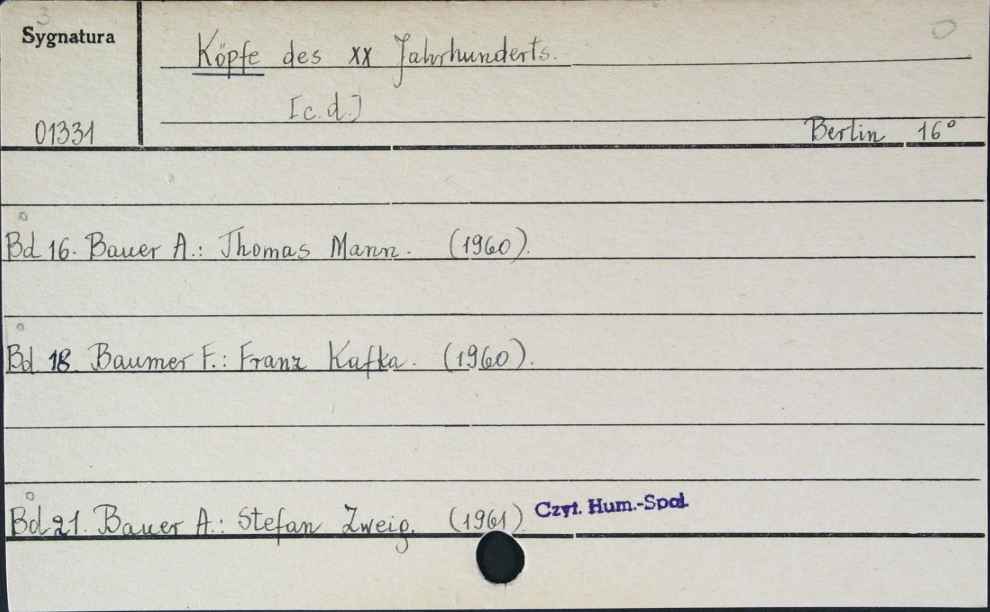 Sygnatura
Köpfe des XX Jahrhunderts.
[c.d.]
01331
Berlin 16°
Bd 16. Bauer A.: Thomas Mann. (1960).
Bd 18. Baumer F.: Franz Kafka. (1960).
Bd 21. Bauer A.: Stefan Zweig. (1961) Czyt. Hum.-Społ.